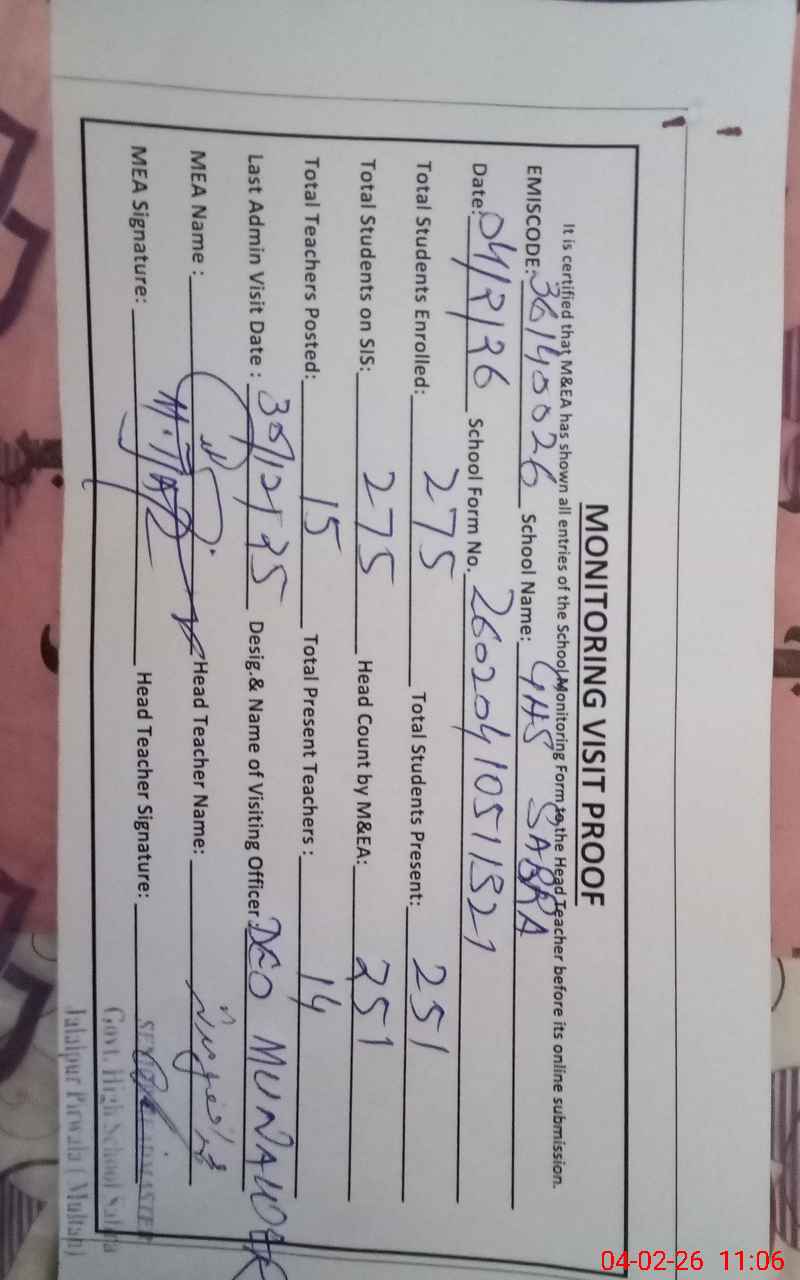 MONITORING VISIT PROOF
It is certified that M&EA has shown all entries of the School Monitoring Form to the Head Teacher before its online submission.
EMISCODE: 36140026 School Name: GHS SABRA
Date: 04/2/26 School Form No. 2602041051521
Total Students Enrolled: 275 Total Students Present: 251
Total Students on SIS: 275 Head Count by M&EA: 251
Total Teachers Posted: 15 Total Present Teachers : 14
Last Admin Visit Date : 30/12/25 Desig.& Name of Visiting Officer: DEO MUNAWAR
MEA Name : Head Teacher Name:
MEA Signature: Head Teacher Signature:
SENIOR HEADMASTER
Govt. High School Sabra
Jalalpur Pirwala (Multan)
04-02-26 11:06